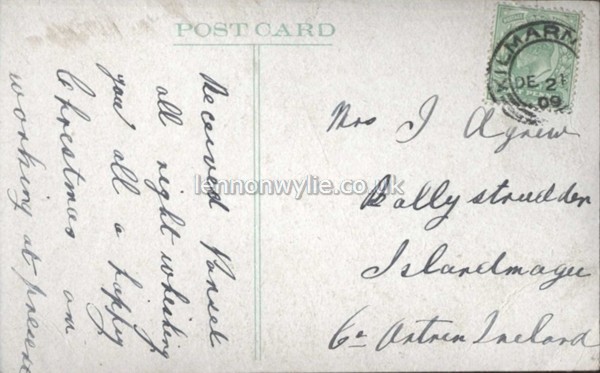 POST CARD
KILMARN
DE 21
09
Received Parsel
all right whishing
you all a happy
Christmas on
working at presen
Mrs J Agnew
Ballystrudden
Islandmagee
Co Antrim Ireland
lennonwylie.co.uk